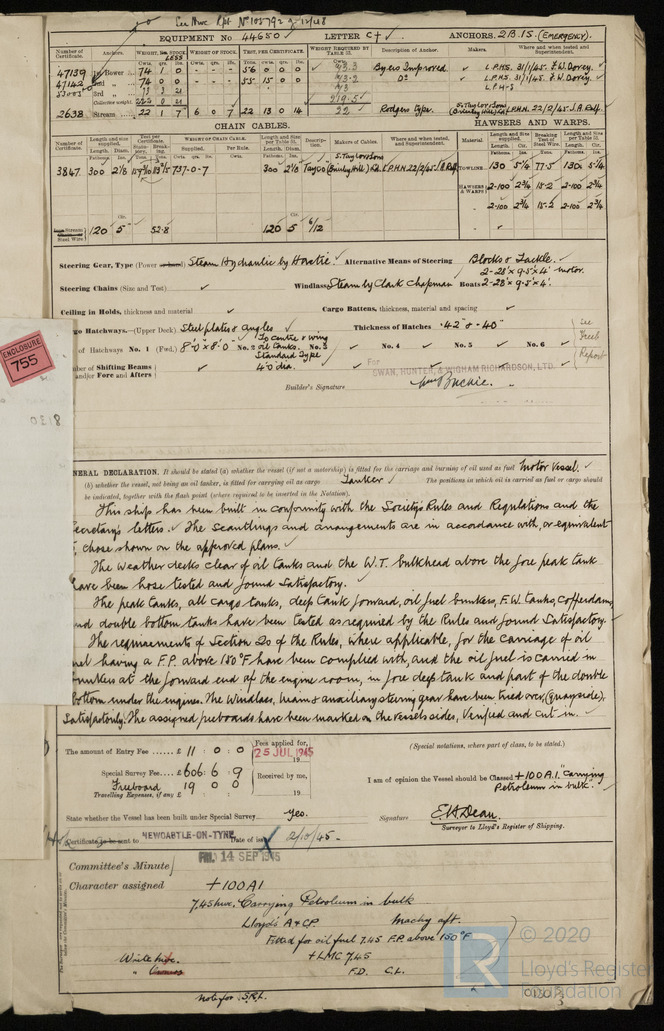 EQUIPMENT No 44650 LETTER C+ ANCHORS. 2B.1S. (EMERGENCY).
Number of Certificate. Anchors. WEIGHT, EX. STOCK LESS WEIGHT OF STOCK. TEST, PER CERTIFICATE. WEIGHT REQUIRED BY TABLE III. Description of Anchor. Makers. Where and when tested and Superintendent.
47139 1st Bower 74 1 0 - - - 56 0 0 0 73.3 Byers Improved. L.P.H.S. 31/1/45. F.W. Dorey.
47142 2nd 74 0 0 - - - 55 15 0 0 73.2 Do L.P.H.S. 31/1/45. F.W. Dorey.
53003 3rd 73 L.P.H.S
Collective weight 219.5
2638 Stream 22 1 7 6 0 7 22 13 0 14 22 Rodgers type. S. Taylor & Son (Brierley Hill) Ltd L.P.H.N. 22/2/45. J.A. Rolf.
CHAIN CABLES. HAWSERS AND WARPS.
Number of Certificate. Length and size supplied. Test per Certificate. WEIGHT OF CHAIN CABLE. Length and size per Table III. Description. Makers of Cables. Where and when tested, and Superintendent. Material. Length and size supplied. Breaking Test of Steel Wire. Length and size per Table III.
Supplied. Per Rule. Length. Diam. Length. Cir.
3847. 300 2⅛ 737-0-7 300 2⅛ Tayco S. Taylor & Son (Brierley Hill) Ltd. L.P.H.N 22/2/45. J.A. Rolf TOWLINE 130 5¼ 77.5 130 5¼
HAWSERS & WARPS 2-100 2¾ 15.2 2-100 2¾
" 2-100 2¾ 15.2 2-100 2¾
Stream Steel Wire 120 5 52.8 120 5 6/12
Steering Gear, Type (Power or hand) Steam Hydraulic by Hastie. Alternative Means of Steering Blocks & Tackle.
Steering Chains (Size and Test) Windlass Steam by Clark Chapman Boats 2-28'x9.5'x4' motor.
2-28'x9.5'x4'.
Ceiling in Holds, thickness and material Cargo Battens, thickness, material and spacing
Cargo Hatchways.—(Upper Deck) Steel plates & angles Thickness of Hatches .42 & .40"
of Hatchways No. 1 (Fwd.) 8'0"x8'0" No. 2 To centre & wing oil tanks. Standard Type 4'0 dia. No. 3 No. 4 No. 5 No. 6 See Freeb Report
Number of Shifting Beams and/or Fore and Afters
For SWAN, HUNTER, & WIGHAM RICHARDSON, LTD.
Builder's Signature
ENCLOSURE
755
GENERAL DECLARATION. It should be stated (a) whether the vessel (if not a motorship) is fitted for the carriage and burning of oil used as fuel Motor Vessel.
(b) whether the vessel, not being an oil tanker, is fitted for carrying oil as cargo Tanker The positions in which oil is carried as fuel or cargo should
be indicated, together with the flash point (where required to be inserted in the Notation).
This ship has been built in conformity with the Society's Rules and Regulations and the
Secretary's letters. The scantlings and arrangements are in accordance with, or equivalent
to those shown on the approved plans.
The weather decks clear of oil tanks and the W.T. bulkhead above the fore peak tank
have been hose tested and found satisfactory.
The peak tanks, all cargo tanks, deep tank forward, oil fuel bunkers, F.W. tanks, cofferdams
and double bottom tanks have been tested as required by the Rules and found Satisfactory.
The requirements of Section 20 of the Rules, where applicable, for the carriage of oil
fuel having a F.P. above 150°F have been complied with, and the oil fuel is carried in
bunkers at the forward end of the engine room, in fore deep tank and part of the double
bottom under the engines. The Windlass, main & auxiliary steering gear have been tried over, (quayside),
Satisfactorily. The assigned freeboards have been marked on the vessels sides, Verified and cut in.
The amount of Entry Fee ...... £ 11 : 0 : 0 Fees applied for, 25 JUL 1945 (Special notations, where part of class, to be stated.)
Special Survey Fee.... £ 606 : 6 : 9 Received by me,
Freeboard 19 0 0
Travelling Expenses, if any £
I am of opinion the Vessel should be Classed +100A.1. "Carrying
Petroleum in bulk."
State whether the Vessel has been built under Special Survey Yes. Signature E.H. Dean.
Surveyor to Lloyd's Register of Shipping.
Certificate to be sent to NEWCASTLE-ON-TYNE Date of issue 2/10/45-
FRI. 14 SEP 1945
Committee's Minute
Character assigned +100A1
7.45 Carrying Petroleum in bulk
Lloyd's A & CP. Machy aft.
Fitted for oil fuel 7.45 F.P. above 150°F
+LMC 7.45
F.D. C.L.
Write
" Owners
note for S.R.L.
© 2020
Lloyd's Register
Foundation